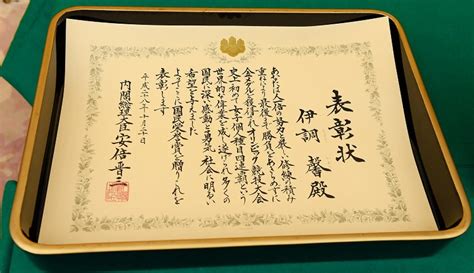 表彰状
伊調 馨殿
あなたは人一倍の努力と厳しい修練を積み
重ねにより最後まで勝負をあきらめずに
金メダルを獲得されオリンピック競技大会
史上初めて女子個人種目四連覇という
世界的な偉業を成し遂げられ多くの
国民に深い感動と勇気社会に明るい
希望を与えました
よってここに国民栄誉賞を贈りこれを
表彰します
平成二十八年十月二十日
内閣総理大臣 安倍晋三